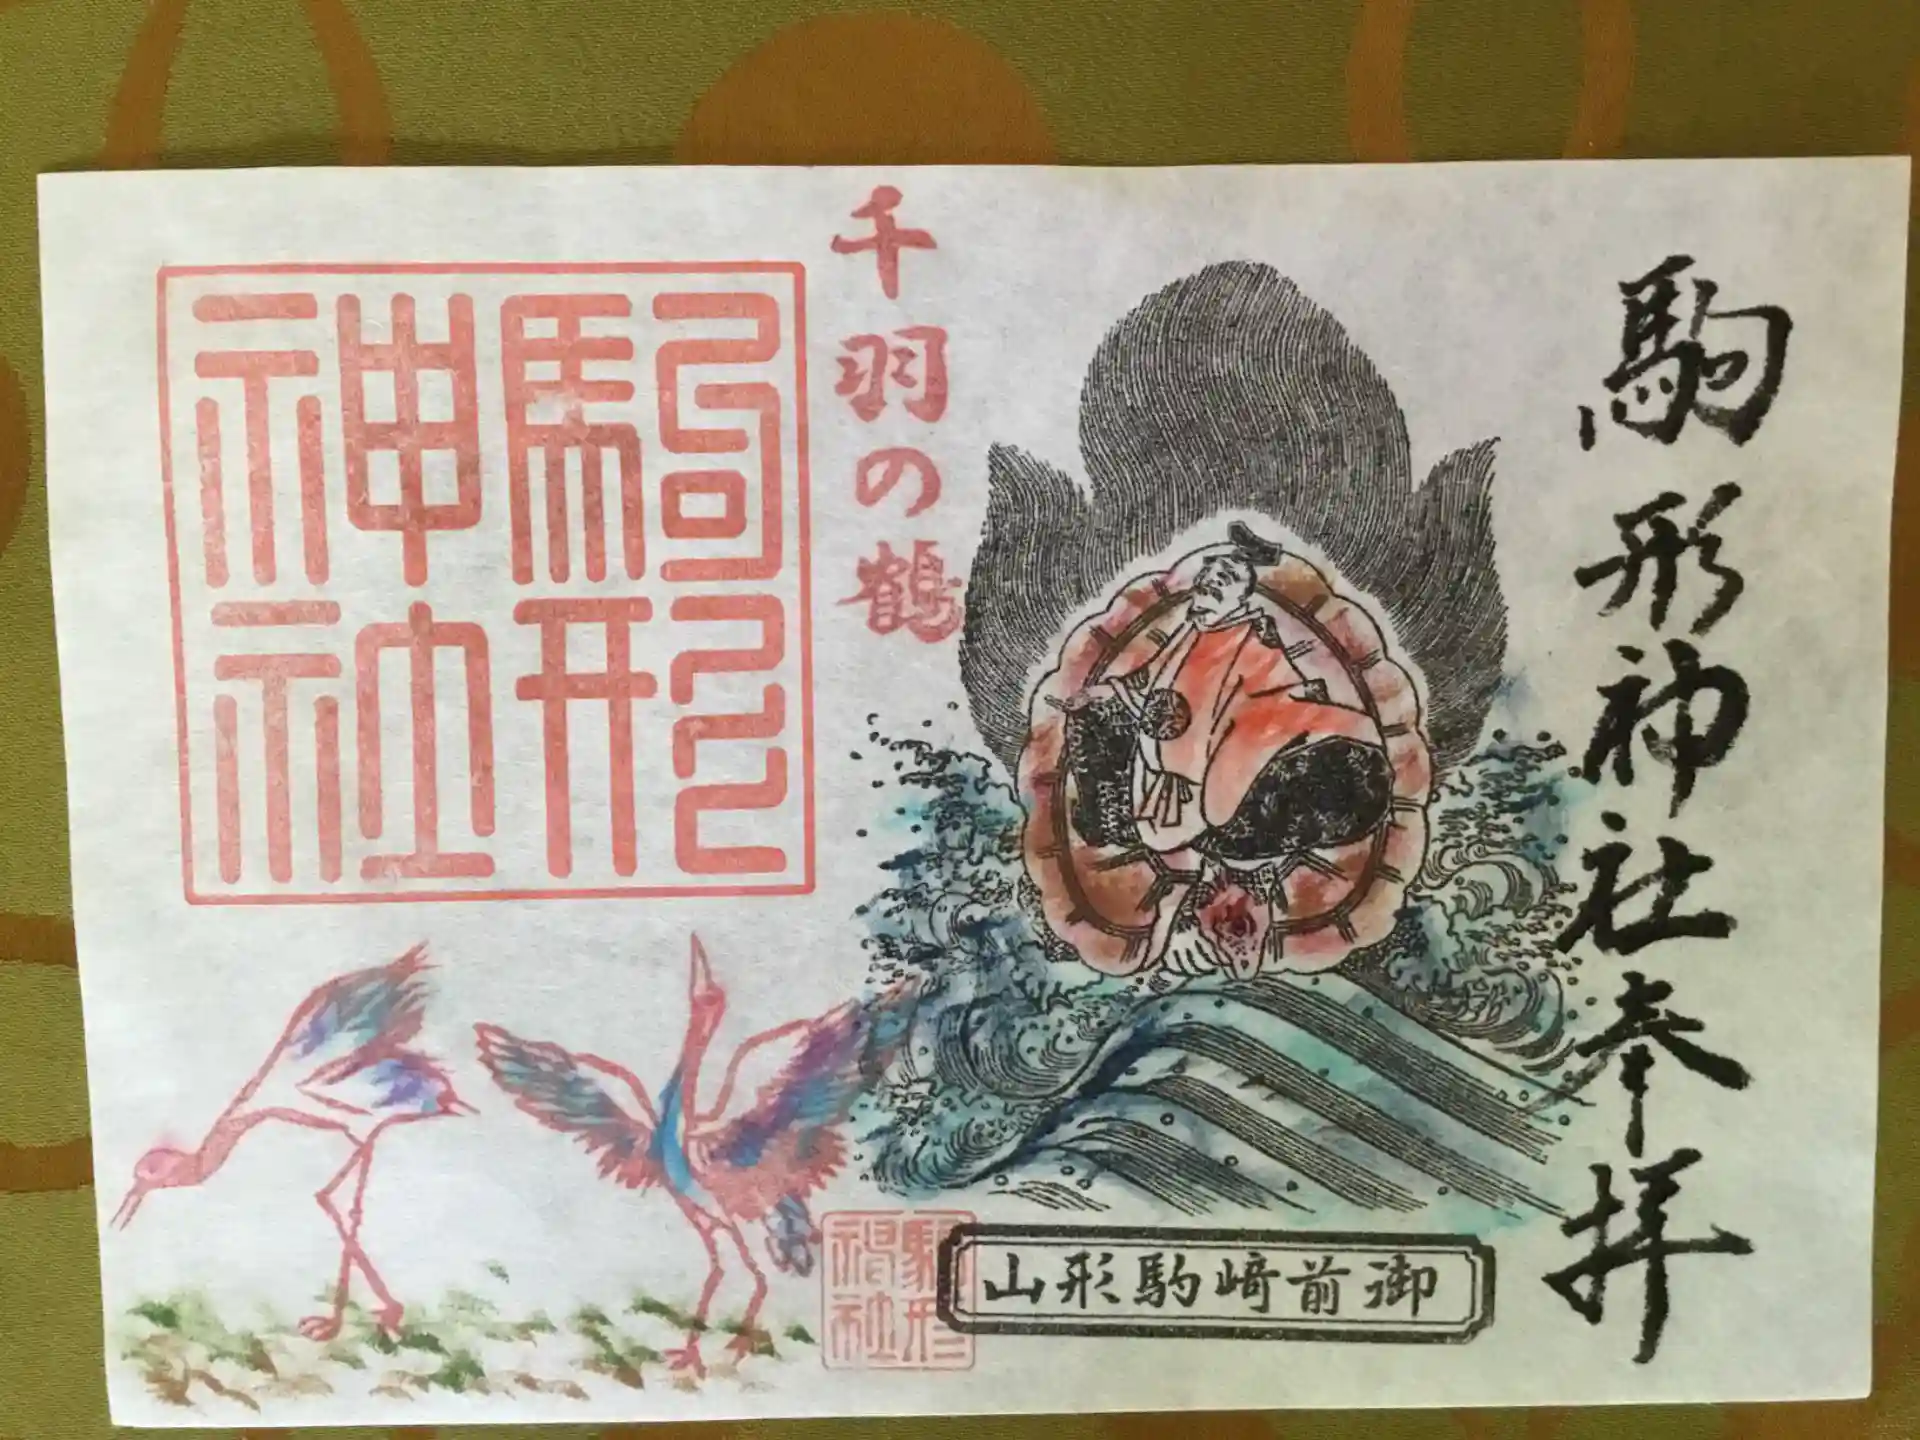 駒形神社奉拝
千羽の鶴
駒形神社
御前崎駒形山
駒形神社